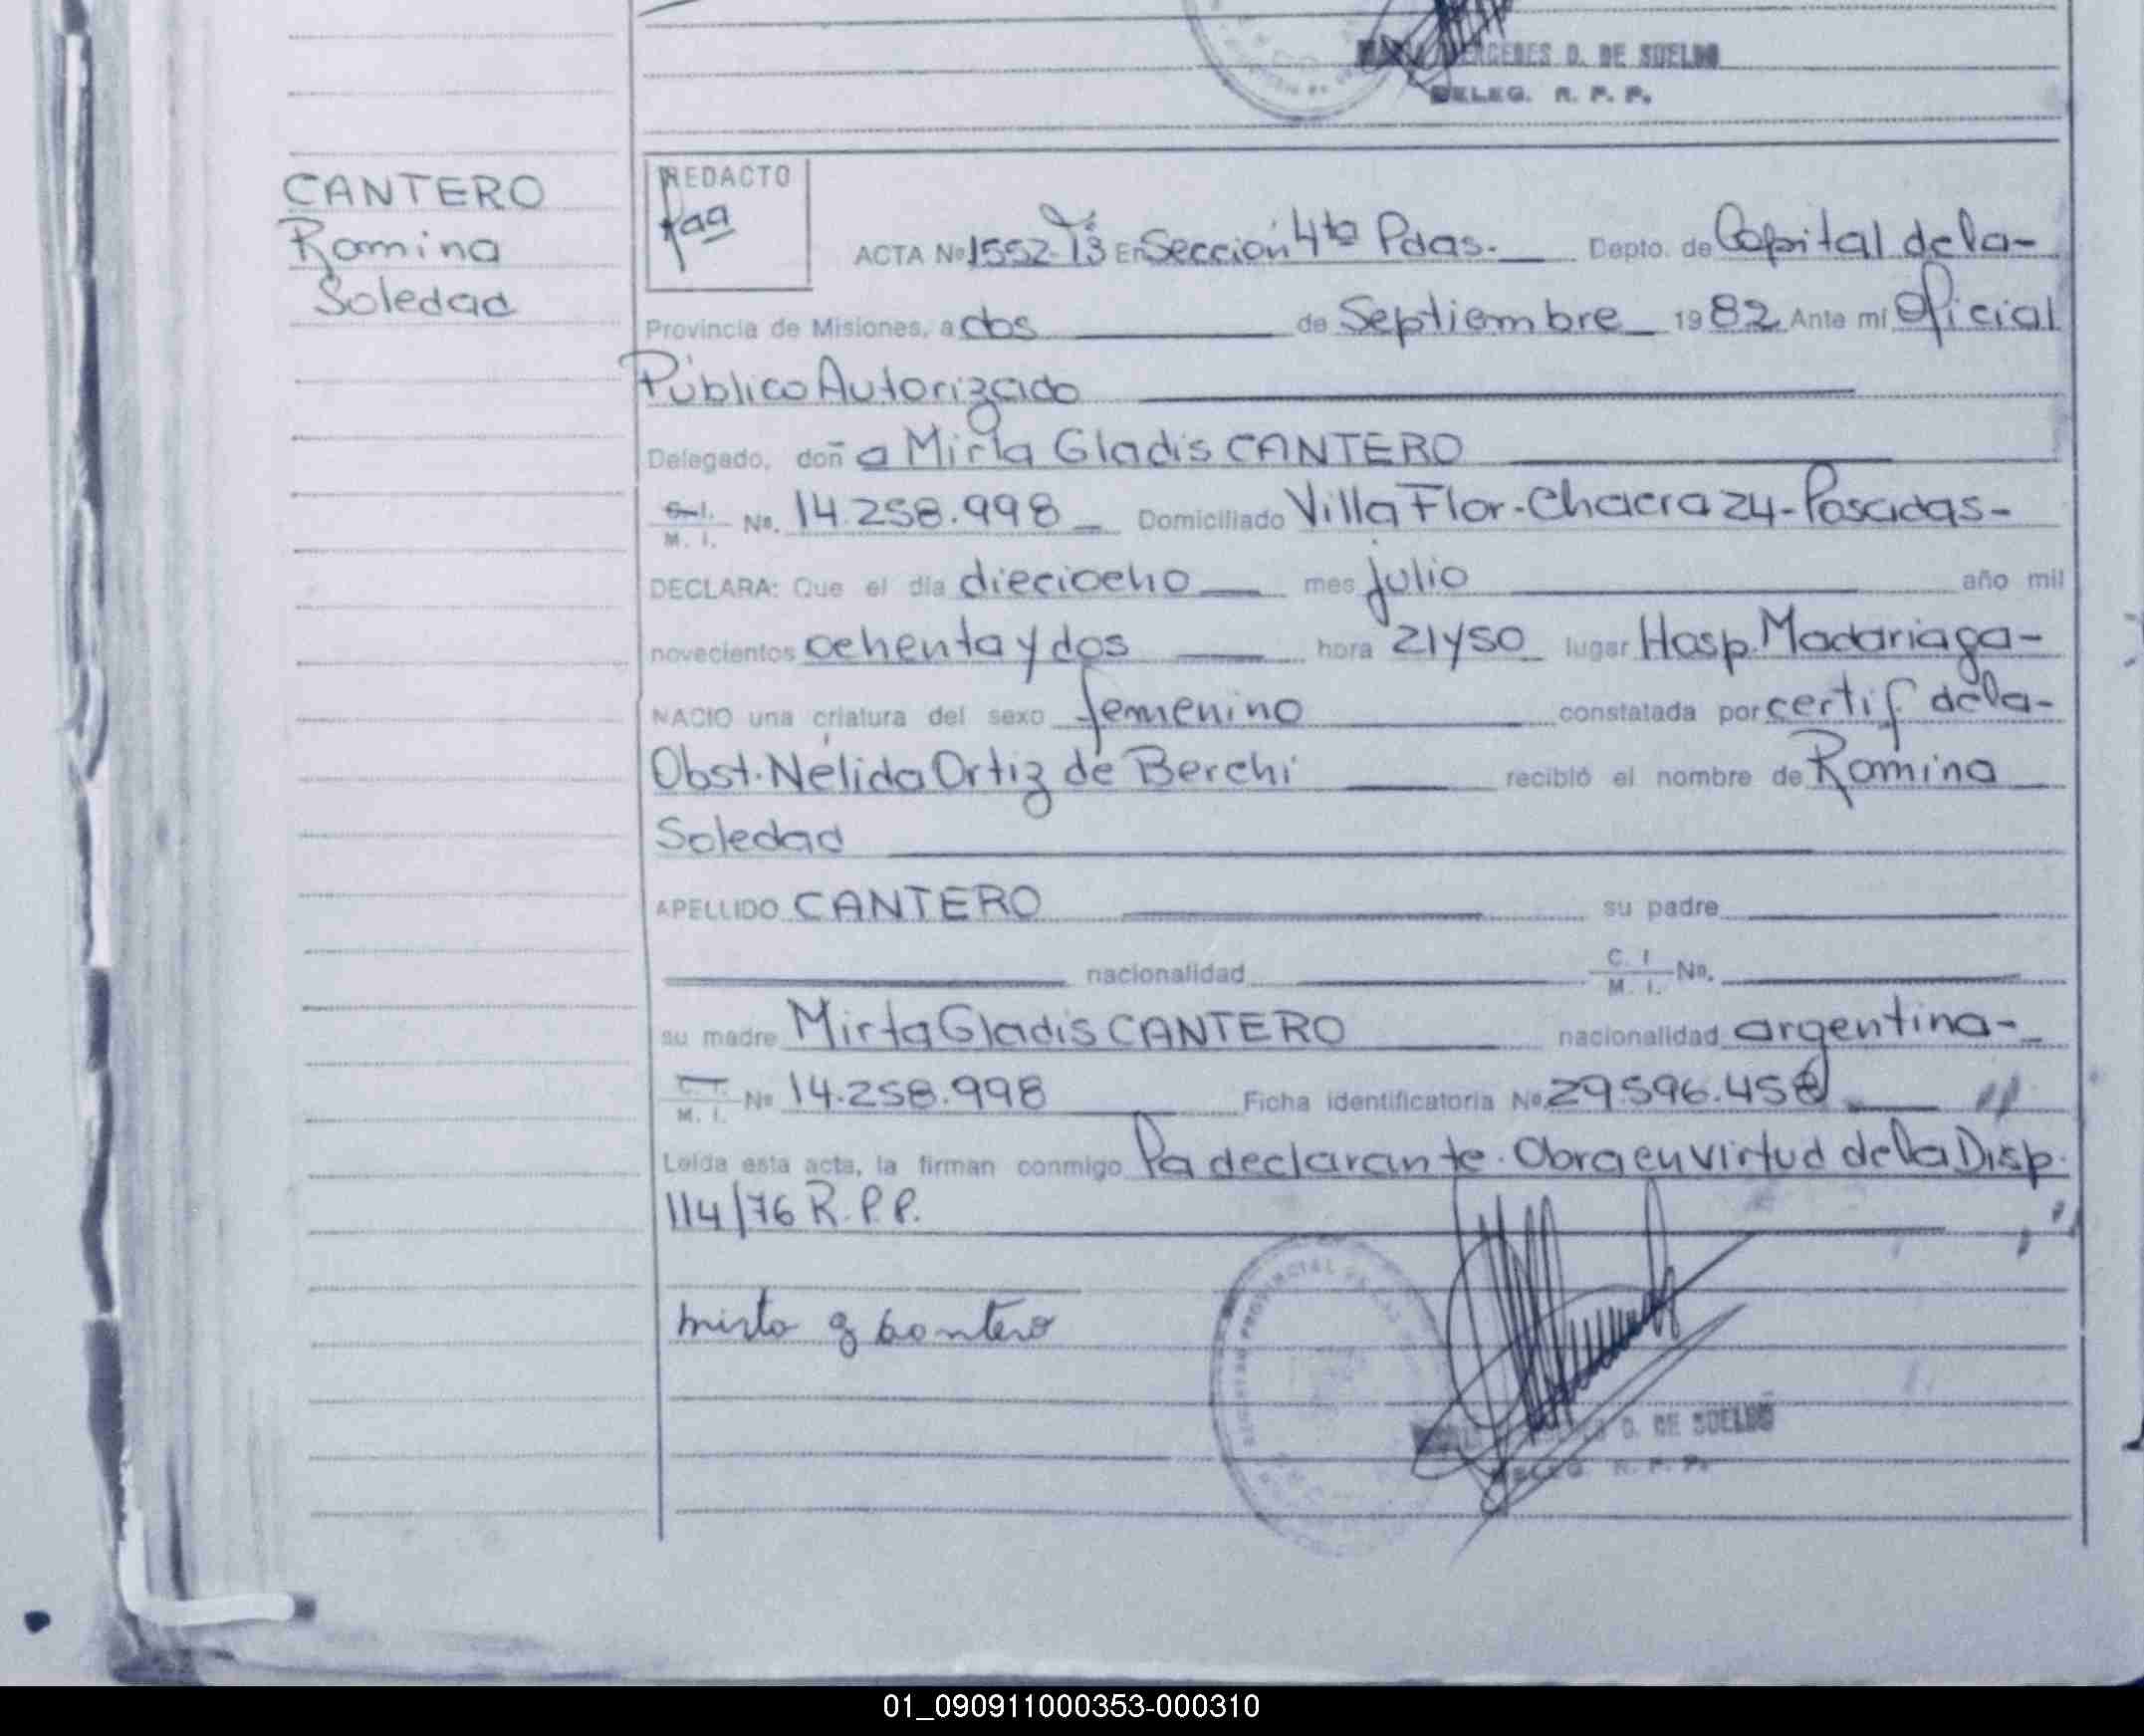 MERCEDES D. DE SUELDO
DELEG. R. P. P.
CANTERO
Romina
Soledad
REDACTO
ACTA Nº 1552-Tº3 En Sección 4ta Pdas. Depto. de Capital de la-
Provincia de Misiones, a dos de Septiembre 1982 Ante mí Oficial
Público Autorizado
Delegado, doña Mirta Gladis CANTERO
C.I. M. I. Nº. 14.258.998 Domiciliado Villa Flor-Chacra 24-Posadas-
DECLARA: Que el día dieciocho mes julio año mil
novecientos ochenta y dos hora 21y50 lugar Hosp. Madariaga-
NACIO una criatura del sexo femenino constatada por certif de la-
Obst. Nélida Ortiz de Berchi recibió el nombre de Romina
Soledad
APELLIDO CANTERO su padre
nacionalidad C. I. M. I. Nº.
su madre Mirta Gladis CANTERO nacionalidad argentina-
C.I. M. I. Nº 14.258.998 Ficha identificatoria Nº 29.596.458
Leída esta acta, la firman conmigo la declarante. Obra en virtud de la Disp.
114/76 R.P.P.
mirta g cantero
D. DE SUELDO
DELEG. R. P. P.
01_090911000353-000310